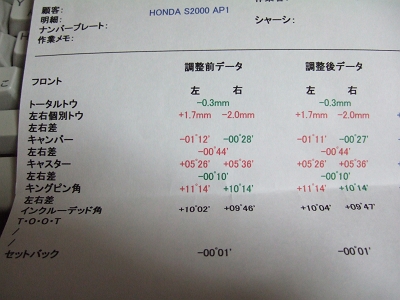 顧客: HONDA S2000 AP1
明細:
ナンバープレート: シャーシ:
作業メモ:
調整前データ 調整後データ
フロント 左 右 左 右
トータルトウ -0.3mm -0.3mm
左右個別トウ +1.7mm -2.0mm +1.7mm -2.0mm
左右差
キャンバー -01°12' -00°28' -01°11' -00°27'
左右差 -00°44' -00°44'
キャスター +05°26' +05°36' +05°26' +05°36'
左右差 -00°10' -00°10'
キングピン角 +11°14' +10°14' +11°14' +10°14'
左右差
インクルーデッド角 +10°02' +09°46' +10°04' +09°47'
T・O・O・T
/
/
セットバック -00°01' -00°01'